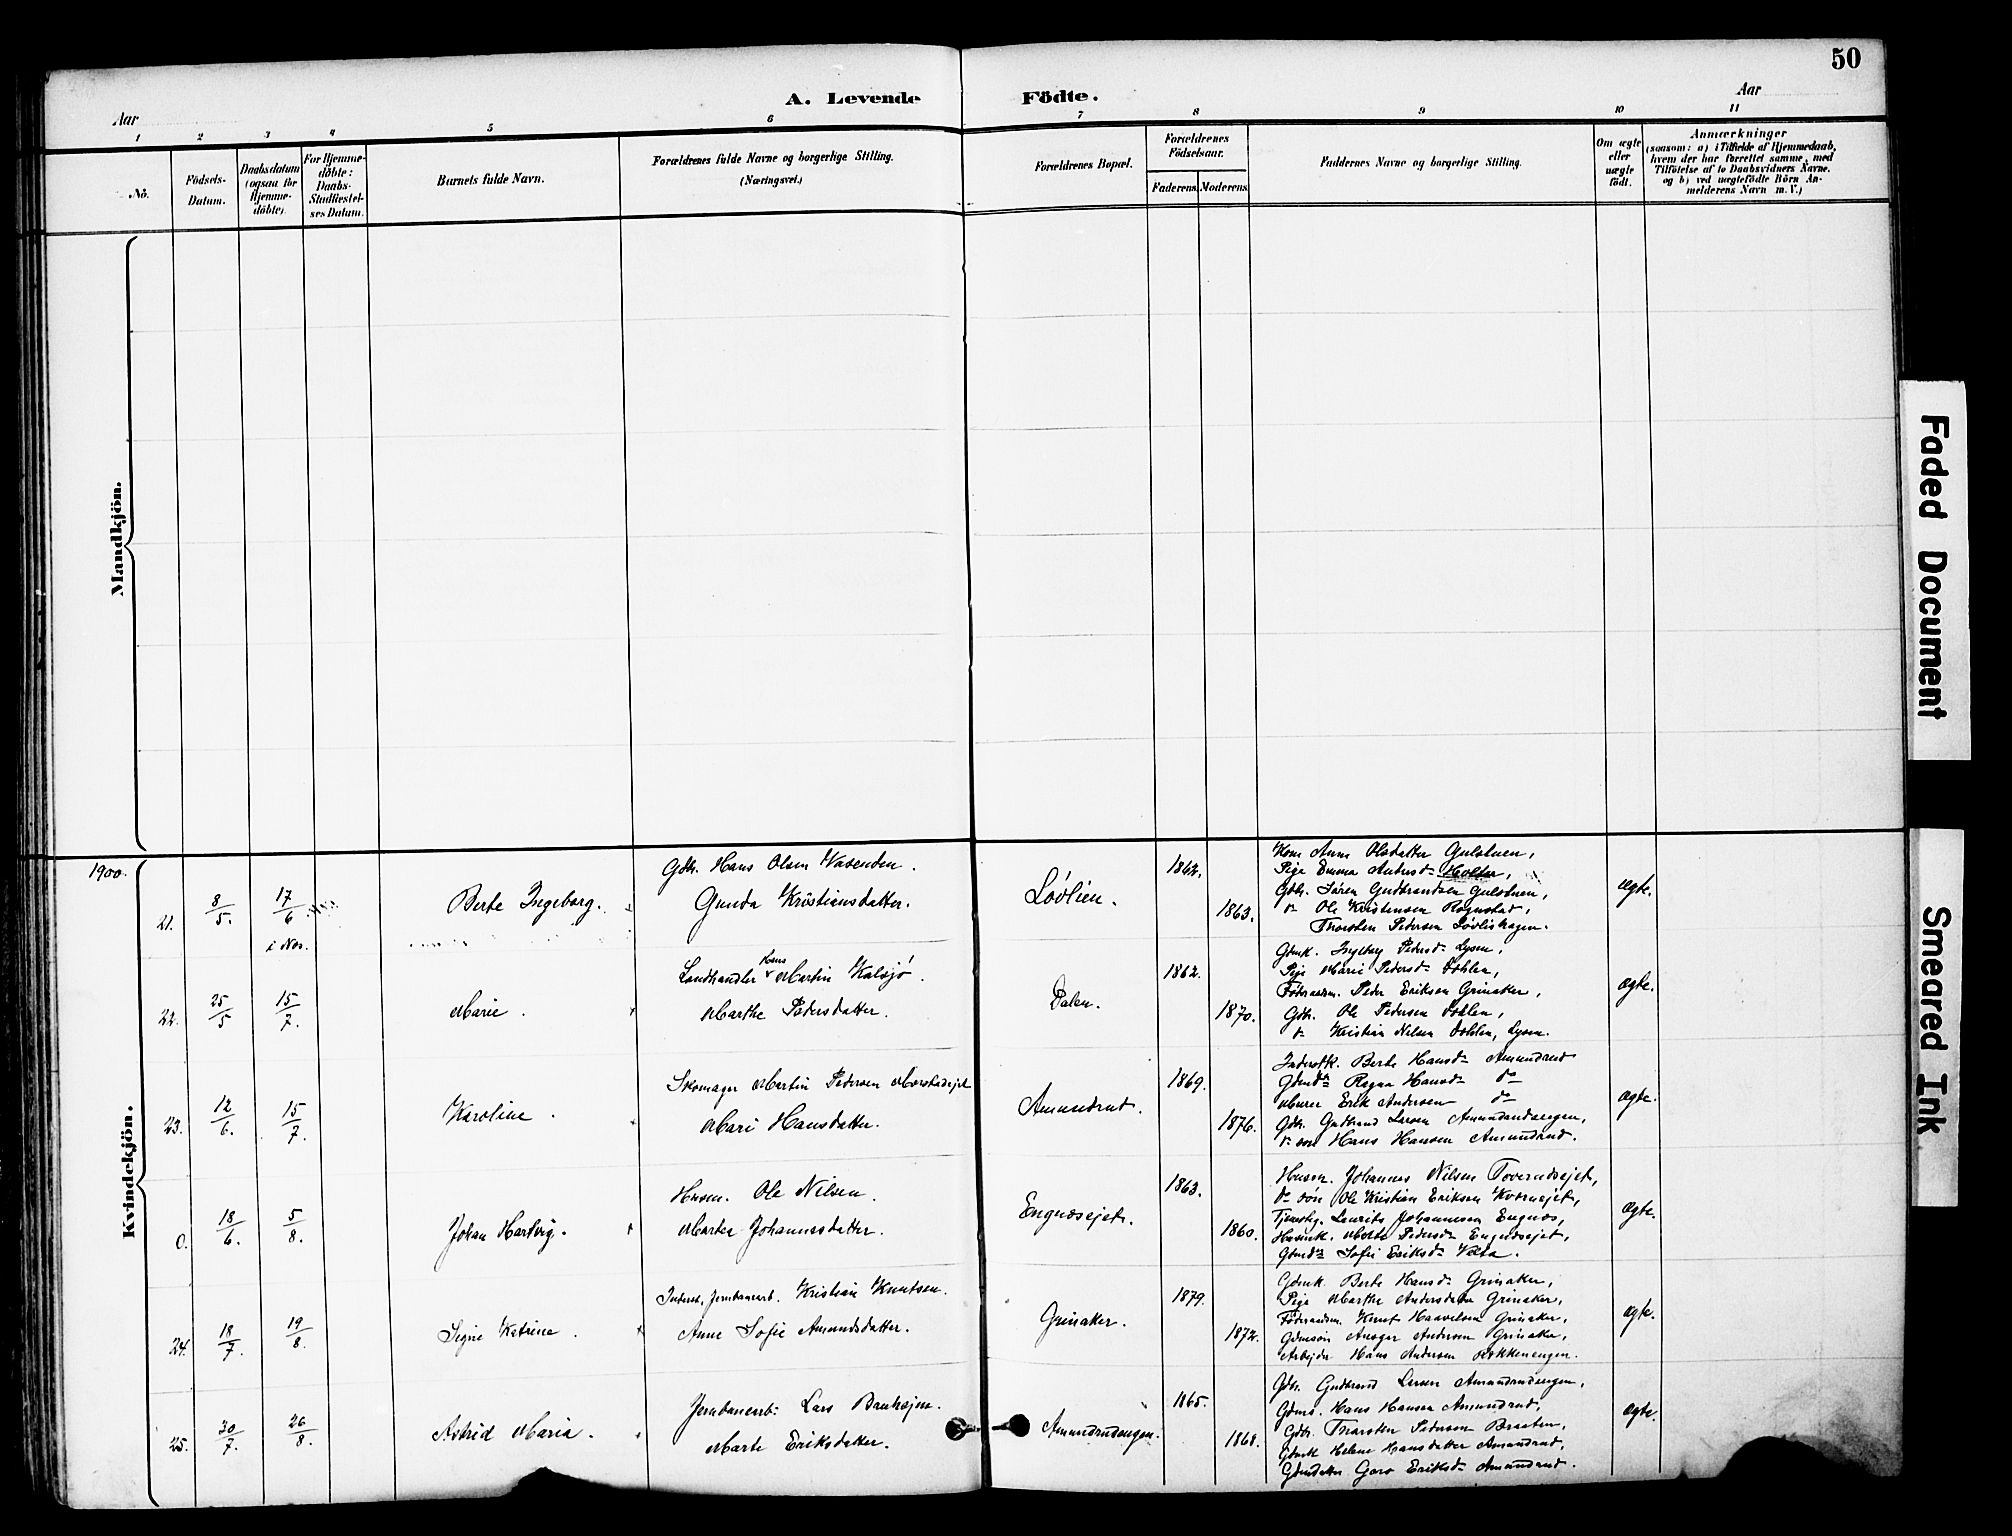 50
A. Levende Födte.
Aar
Aar
1 2 3 4 5 6 7 8 9 10 11
No.
Födsels-
Datum.
Daabsdatum
(ogsaa for
Hjemme-
döbte).
For Hjemme-
döbte:
Daabs-
Stadfæstel-
ses Datum.
Barnets fulde Navn.
Forældrenes fulde Navne og borgerlige Stilling.
(Næringsvei.)
Forældrenes Bopæl.
Forældrenes
Födselsaar.
Faderens. Moderens.
Faddernes Navne og borgerlige Stilling.
Om ægte
eller
uægte
födt.
Anmærkninger
(saasom: a) i Tilfælde af Hjemmedaab,
hvem der har forrettet samme, med
Tilföielse af to Daabsvidners Navne.
og b) ved uægtefödte Börn An-
melderens Navn m. V.)
Mandkjön.
Kvindekjön.
1900.
21. 8/5. 17/6 i Nor.
Berte Ingeborg.
Gbr. Hans Olsen Vasenden.
Gunda Kristiansdatter.
Lövlien.
1862.
1863.
Kone Anne Olsdatter Gulstuen,
Pige Emma Andersd. Holter,
Gbr. Sören Gudbrandsen Gulstuen,
do Ole Kristensen Rognstad,
Thorsten Pedersen Lövlishagen.
ægte.
22. 25/5 15/7.
Marie.
Landhandler Hans Martin Kalsjö.
Marthe Pedersdatter.
Dalen.
1862.
1870.
Gbmk. Ingeborg Pedersd. Lysen,
Pige Marie Pedersd. Dohlen,
Föderaadsm. Peder Eriksen Grinaker,
Gbr. Ole Pedersen Dohlen,
do Kristian Nilsen Dohlen, Lysen.
ægte.
23. 12/6. 15/7.
Karoline.
Skomager Martin Pedersen Morstadejet
Mari Hansdatter.
Amundrud.
1869.
1876.
Inderstk. Berte Hansd. Amundrud
Gbmdtr Ragna Hansd. do
Murer Erik Andersen do
Gbr. Gudbrand Larsen Amundrudengen,
do sön Hans Hansen Amundrud.
ægte.
0. 18/6. 5/8.
Johan Hartvig.
Husm. Ole Nilsen.
Marter Johannesdatter.
Engnæsejet.
1863.
1860.
Husm. Johannes Nilsen Toverudsejet,
do sön Ole Kristian Eriksen
Tjenestkg. Laurits Johannesen Engnæs,
Husmk. Marte Pedersd. Engnæsejet,
Gbmdtr Sofie Eriksd. Velta.
ægte.
24. 18/7. 19/8.
Signe Katrine.
Inderst, Jernbanearb. Kristian Knutsen.
Anne Sofie Amundsdatter.
Grinaker.
1879.
1872.
Gbmk. Berte Hansd. Grinaker,
Pige Marthe Andersdatter Grinaker,
Föderaadsm. Knut Haavelsen Grinaker,
Gbmsön Ansgar Andersen Grinaker,
Arbejder Hans Andersen Rækkenengen.
ægte.
25. 30/7. 26/8.
Astrid Maria.
Jernbanearb: Lars
Marte Eriksdatter.
Amundrudengen.
1865.
1868.
Gbr. Gudbrand Larsen Amundrudengen,
Gbms. Hans Hansen Amundrud,
Gbr. Thorsten Pedersen Braaten,
Gbmk Helene Hansdatter Amundrud,
Gbmdatter Goro Eriksd. Amundrud.
ægte.
Faded Document
Smeared Ink